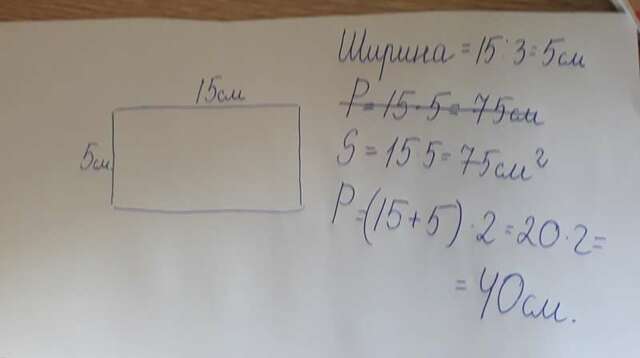 15см
5см
Ширина = 15 : 3 = 5см
P = 15 · 5 = 75см
S = 15 5 = 75см²
P = (15 + 5) · 2 = 20 · 2 =
= 40см.